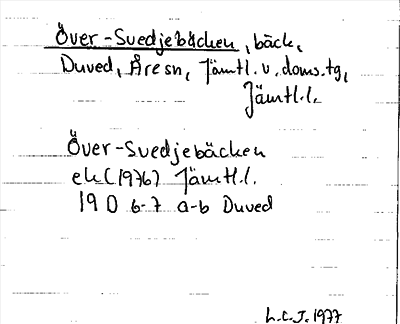 Över-Svedjebäcken, bäck,
Duved, Åre sn, Jämtl. v. doms. tg,
Jämtl.l.
Över-Svedjebäcken
ek (1976) Jämtl.l.
19 D 6-7 a-b Duved
L.C.J. 1977